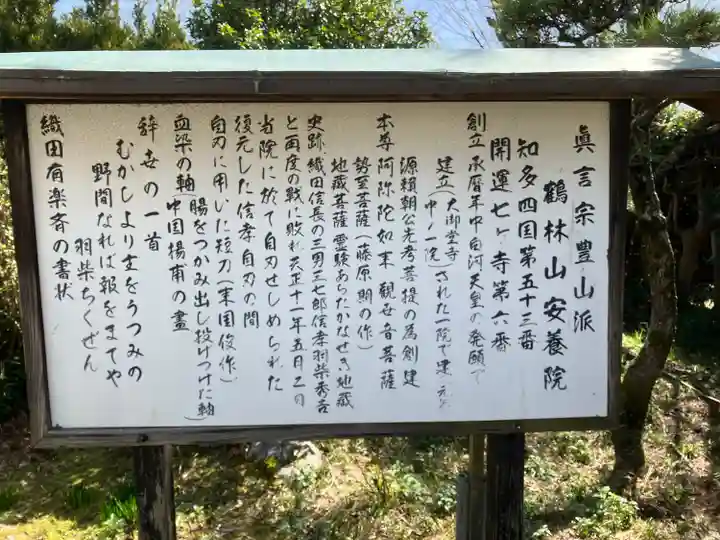 眞言宗豊山派
鶴林山安養院
知多四国第五十三番
開運七ヶ寺第六番
創立 承暦年中白河天皇の発願で
建立(大御堂寺)された一院で建元は
(中ノ一院)
源頼朝公先考菩提の為創建
本尊 阿弥陀如来 観世音菩薩
勢至菩薩(藤原期の作)
地蔵菩薩霊験あらたかなせき地蔵
史跡 織田信長の三男三七郎信孝羽柴秀吉
と両度の戦に敗れ天正十一年五月二日
当院に於て自刃せしめられた
復元した信孝自刃の間
自刃に用いた短刀(来国俊作)
血染の軸(腸をつかみ出し投げつけた軸)
中国楊甫の畫
辞世の一首
むかしより主をうつみの
野間なれば報をまてや
羽柴ちくぜん
織田有楽斉の書状